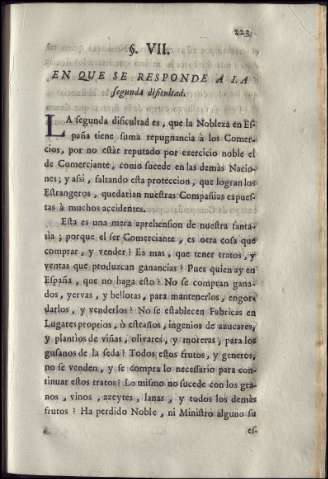 223
§. VII.
EN QUE SE RESPONDE A LA
segunda dificultad.
LA segunda dificultad es, que la Nobleza en Es-
paña tiene suma repugnancia à los Comer-
cios, por no estàr reputado por exercicio noble el
de Comerciante, como sucede en las demàs Nacio-
nes; y asi, faltando esta proteccion, que logran los
Estrangeros, quedarian nuestras Compañias expues-
tas à muchos accidentes.
Esta es una mera aprehension de nuestra fanta-
sìa; porque el ser Comerciante, es otra cosa que
comprar, y vender? Es mas, que tener tratos, y
ventas que produzcan ganancias? Pues quien ay en
España, que no haga esto? No se compran gana-
dos, yervas, y bellotas, para mantenerlos, engor-
darlos, y venderlos? No se establecen Fabricas en
Lugares propios, ò estraños, ingenios de azucares,
y plantìos de viñas, olivares, y moreras, para los
gusanos de la seda? Todos estos frutos, y generos,
no se venden, y se compra lo necessario para con-
tinuar estos tratos? Lo mismo no sucede con los gra-
nos, vinos, azeytes, lanas, y todos los demàs
frutos? Ha perdido Noble, ni Ministro alguno su
es-